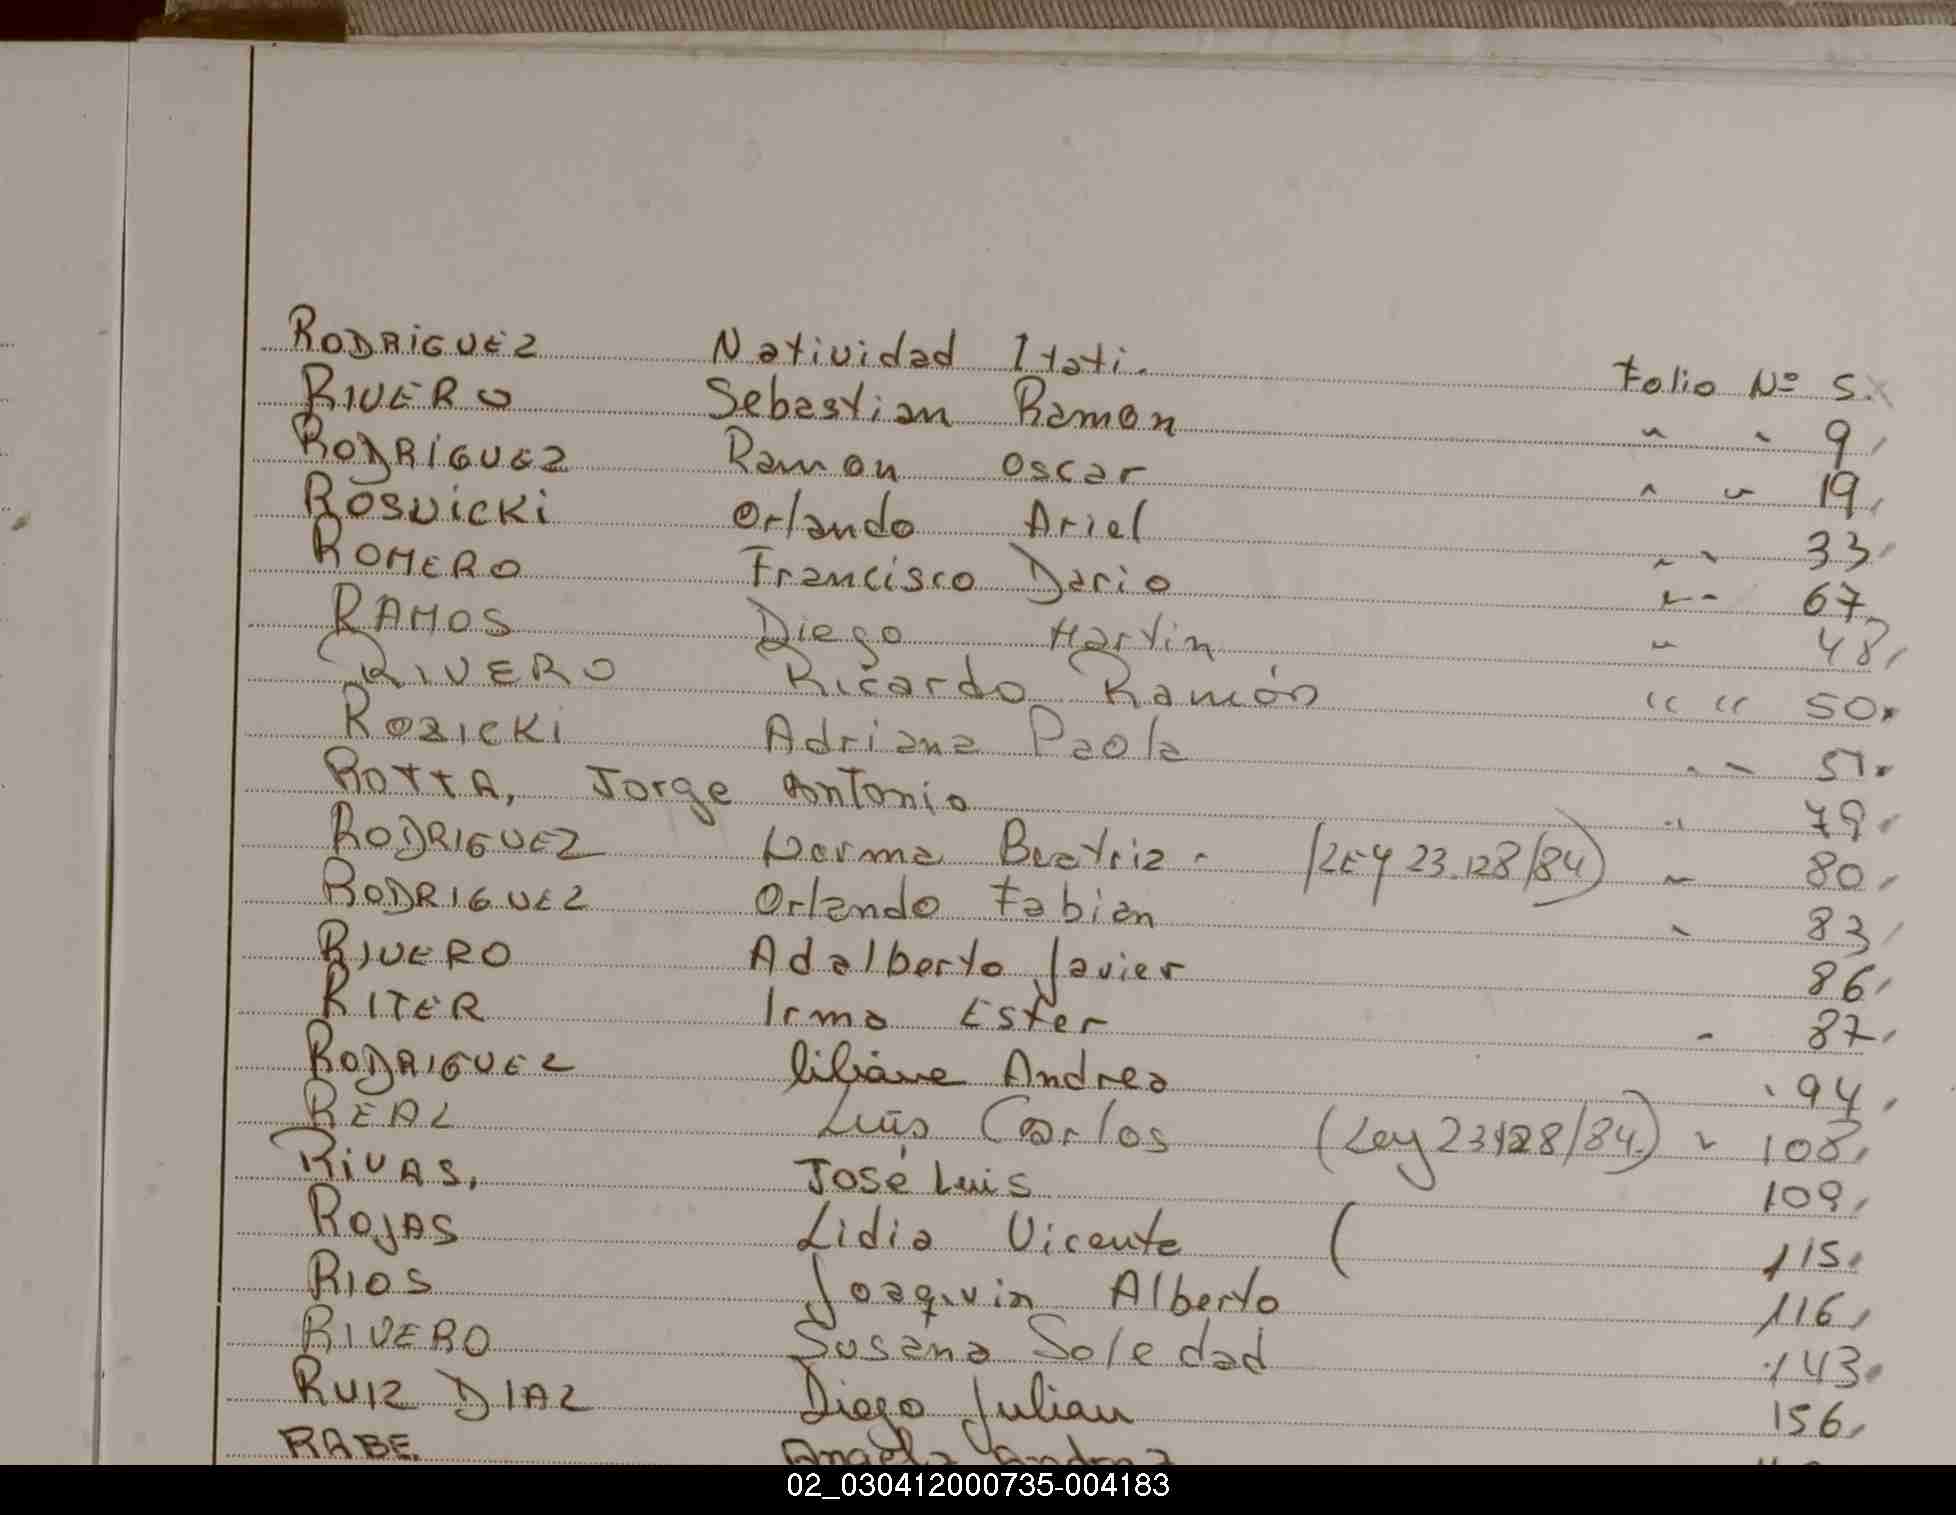 RODRIGUEZ Natividad Itati. Folio Nº 5.
RIVERO Sebastian Ramon " " 9,
RODRIGUEZ Ramon Oscar " " 19,
ROSVICKI Orlando Ariel " " 33,
ROMERO Francisco Dario " " 67,
RAMOS Diego Martin " 48,
RIVERO Ricardo Ramón " " 50.
ROZICKI Adriana Paola " " 51.
ROTTA, Jorge Antonio " 79,
RODRIGUEZ Norma Beatriz - (LEY 23.128/84) " 80,
RODRIGUEZ Orlando Fabian " 83,
RIVERO Adalberto Javier 86,
RITER Irma Ester " 87,
RODRIGUEZ liliana Andrea " 94,
REAL Luis Carlos (Ley 23128/84.) " 108,
RIVAS, José Luis 109,
ROJAS Lidia Vicente ( 115,
RIOS Joaquin Alberto 116,
RIVERO Susana Soledad 143.
RUIZ DIAZ Diego Julian 156,
RABE. Angela
02_030412000735-004183